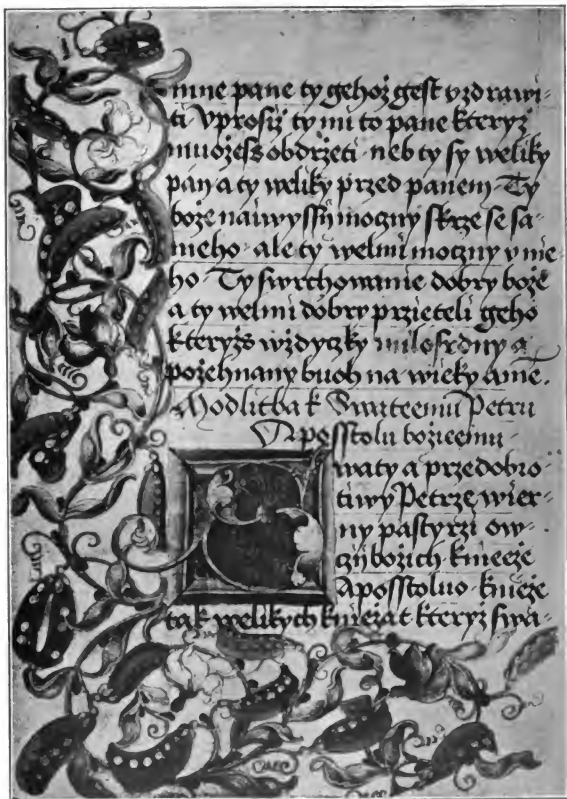 mne pane ty gehož gest vzdrawi-
ti Vprosiž ty mi to pane kteryž
muožess obdržeti neb ty sy weliky
pan a ty weliky przed panem Ty
bože naiwyssij mogny skrze se sa-
meho ale ty welmi moczny v nie-
ho Ty swrchowanie dobry bože
a ty welmi dobry przieteli geho
kteryžs wždyczky milosrdny a
požehnany buoh na wieky ame.
Modlitba k Swateemu Petru
Aposstolu božieemu
waty a przedobro-
tiwy Petrze wier-
ny pastyrzi ow-
czij božich knieeže
Aposstoluo knieže
tak welikych kniežat kteryž swa-